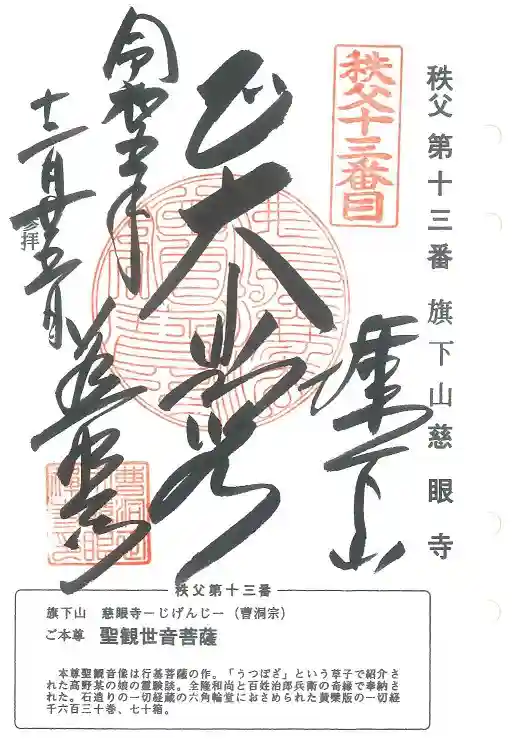 秩父第十三番 旗下山慈眼寺
秩父十三番目
旗下山
大悲殿
慈眼寺
令和五年
十二月廿五日
参拝
秩父第十三番
旗下山 慈眼寺－じげんじ－（曹洞宗）
ご本尊 聖観世音菩薩
本尊聖観音像は行基菩薩の作。「うつぼざ」という草子で紹介さ
れた高野某の娘の霊験談。全隆和尚と百姓治郎兵衛の奇縁で奉納さ
れた。石造りの一切経蔵の六角輪堂におさめられた黄檗版の一切経
千六百三十巻、七十箱。